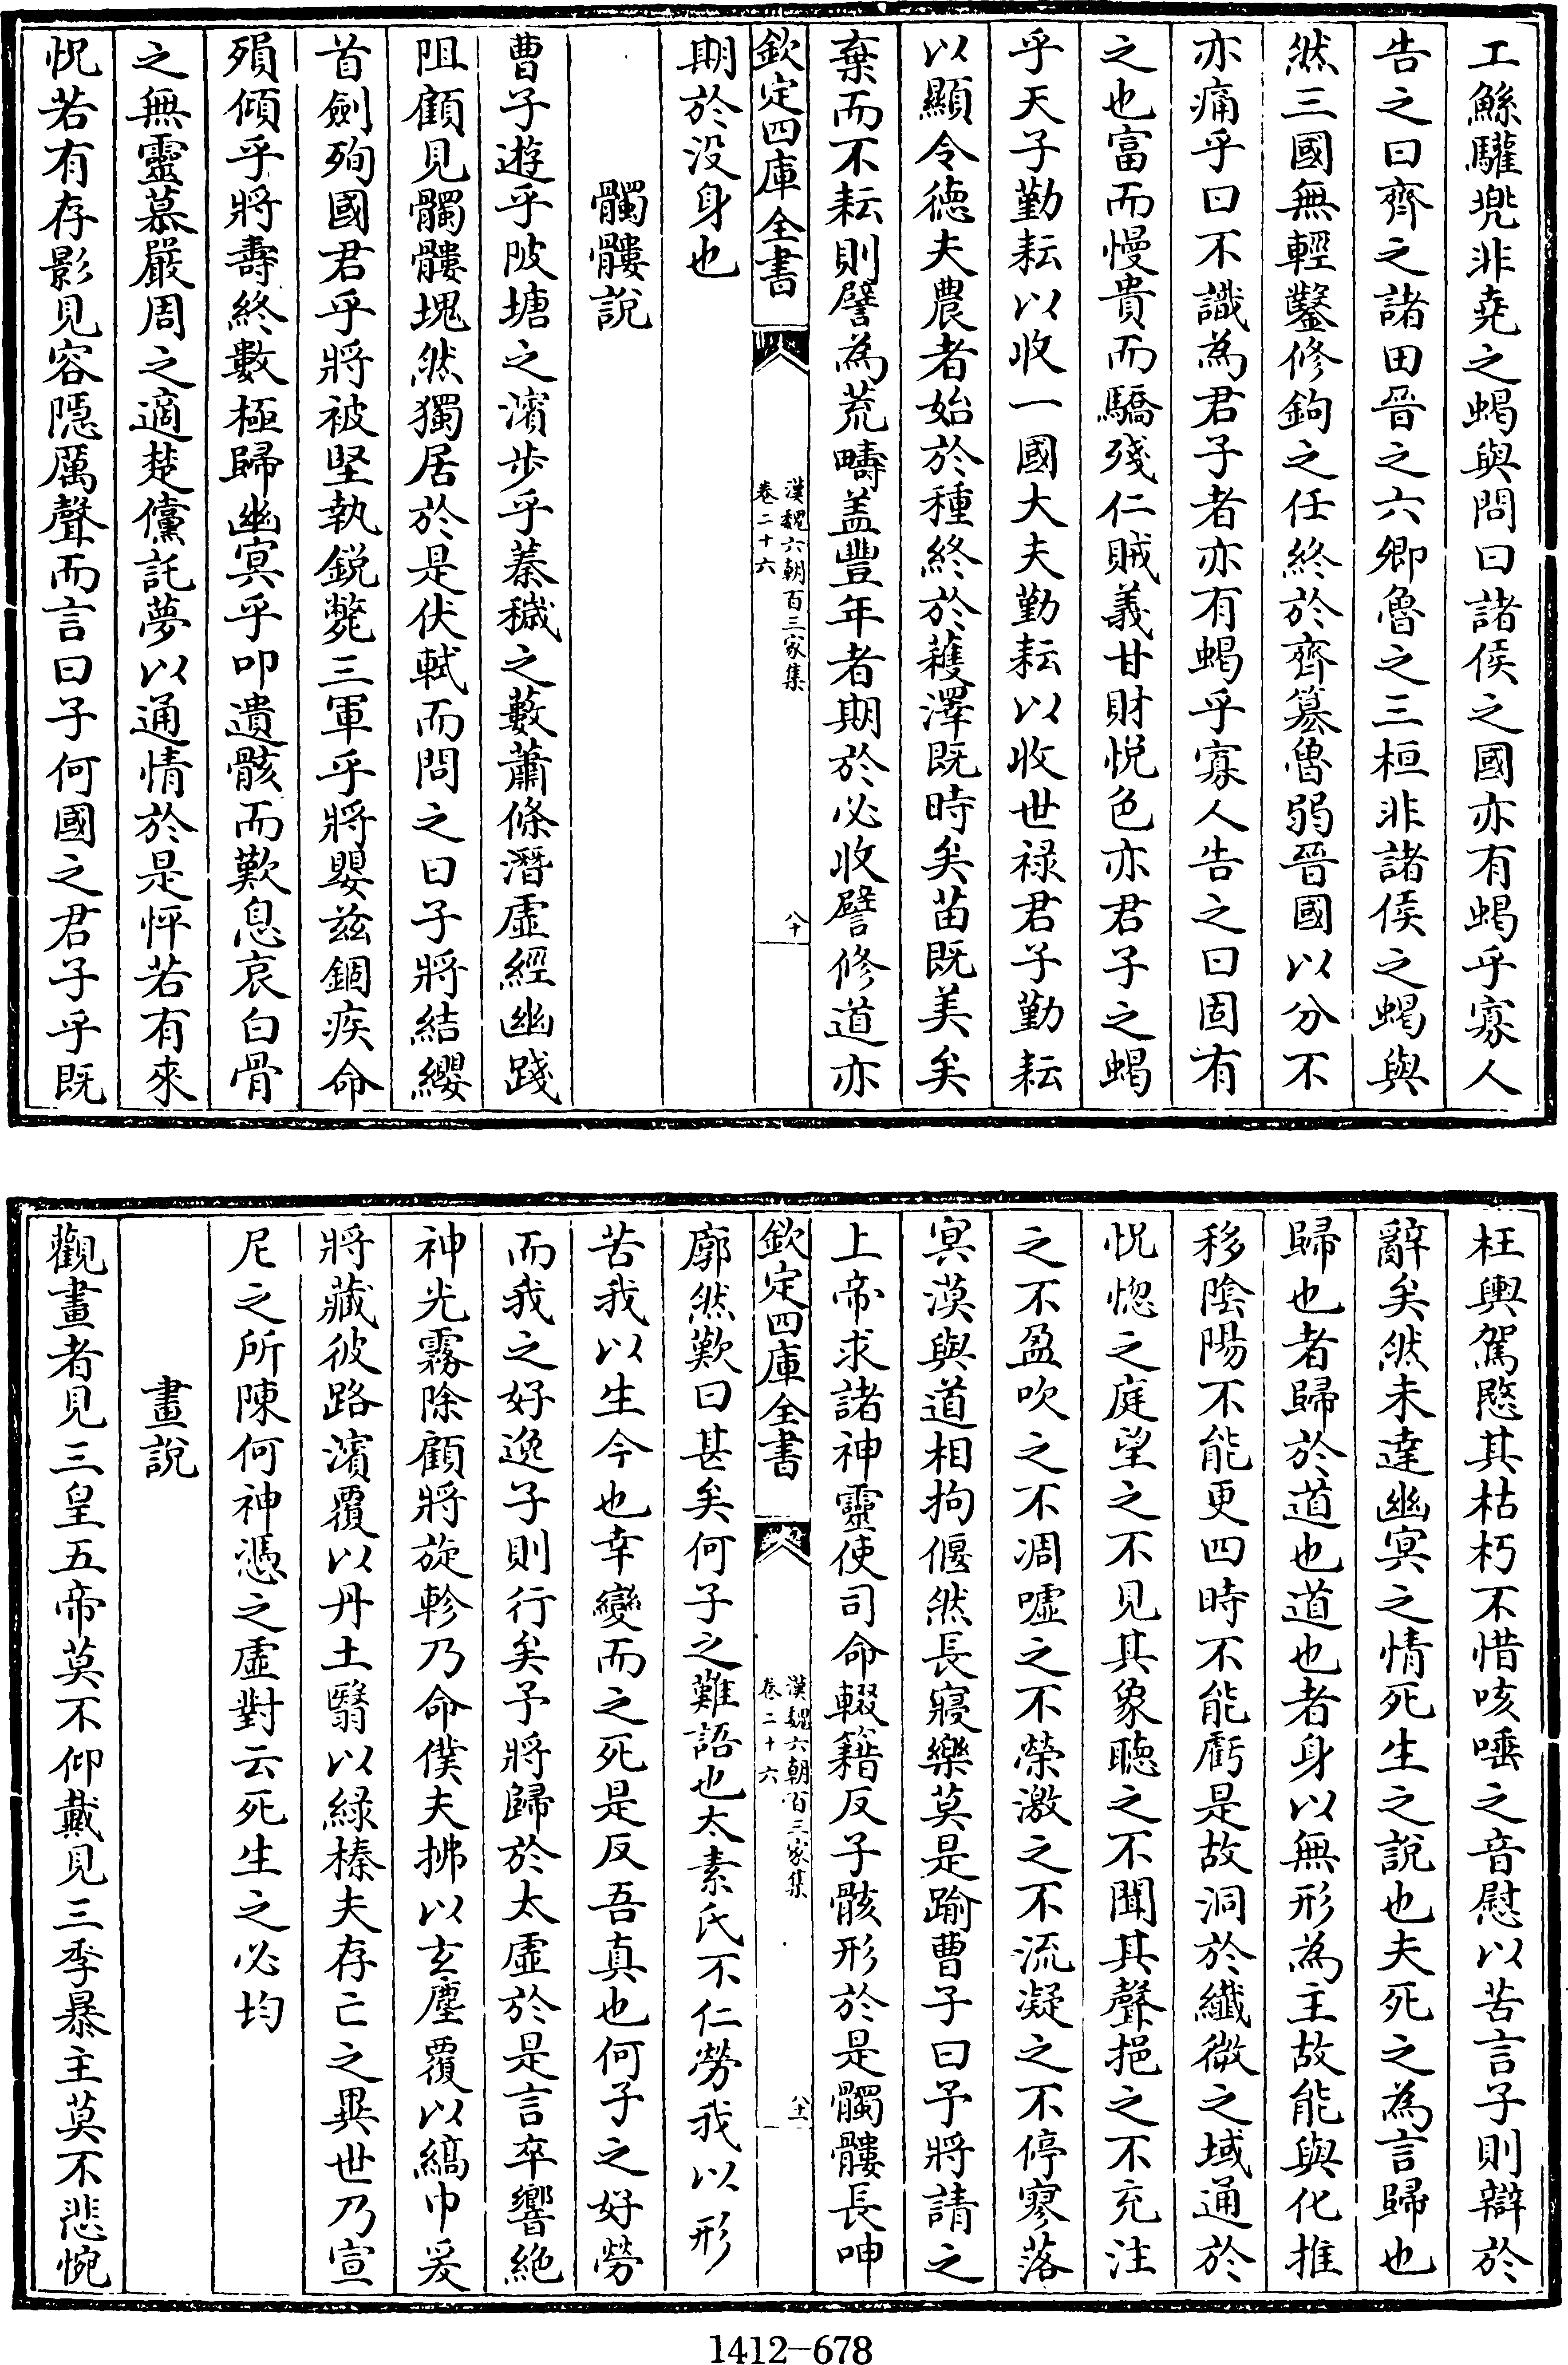 工鯀驩兠非堯之蝎與問曰諸侯之國亦有蝎乎寡人
告之曰齊之諸田晉之六卿魯之三桓非諸侯之蝎與
然三國無輕鑿修鉤之任終於齊簒魯弱晉國以分不
亦痛乎曰不識為君子者亦有蝎乎寡人告之曰固有
之也富而慢貴而驕殘仁賊義甘財悅色亦君子之蝎
乎天子勤耘以收一國大夫勤耘以收世祿君子勤耘
以顯令德夫農者始於種終於穫澤既時矣苗既美矣
棄而不耘則譬為荒疇盖豐年者期於必收譬修道亦
欽定四庫全書
漢魏六朝百三家集
卷二十六
八十
期於没身也
髑髏說
曹子遊乎陂塘之濱步乎蓁穢之藪蕭條潛虛經幽踐
阻顧見髑髏塊然獨居於是伏軾而問之曰子將結纓
首劍殉國君乎將被堅執銳斃三軍乎將嬰兹錮疾命
殞傾乎將壽終數極歸幽冥乎叩遺骸而歎息哀白骨
之無靈慕嚴周之適楚儻託夢以通情於是怦若有來
怳若有存影見容隱厲聲而言曰子何國之君子乎既
枉輿駕愍其枯朽不惜咳唾之音慰以苦言子則辯於
辭矣然未達幽冥之情死生之說也夫死之為言歸也
歸也者歸於道也道也者身以無形為主故能與化推
移陰陽不能更四時不能虧是故洞於纖微之域通於
怳惚之庭望之不見其象聽之不聞其聲挹之不充注
之不盈吹之不凋噓之不榮激之不流凝之不停寥落
冥漠與道相拘偃然長寢樂莫是踰曹子曰予將請之
上帝求諸神靈使司命輟籍反子骸形於是髑髏長呻
欽定四庫全書
漢魏六朝百三家集
卷二十六
八十一
廓然歎曰甚矣何子之難語也太素氏不仁勞我以形
苦我以生今也幸變而之死是反吾真也何子之好勞
而我之好逸子則行矣予將歸於太虛於是言卒響絕
神光霧除顧將旋軫乃命僕夫拂以玄塵覆以縞巾爰
將藏彼路濱覆以丹土翳以緑榛夫存亡之異世乃宣
尼之所陳何神憑之虛對云死生之必均
畫說
觀畫者見三皇五帝莫不仰戴見三季暴主莫不悲惋
1412-678